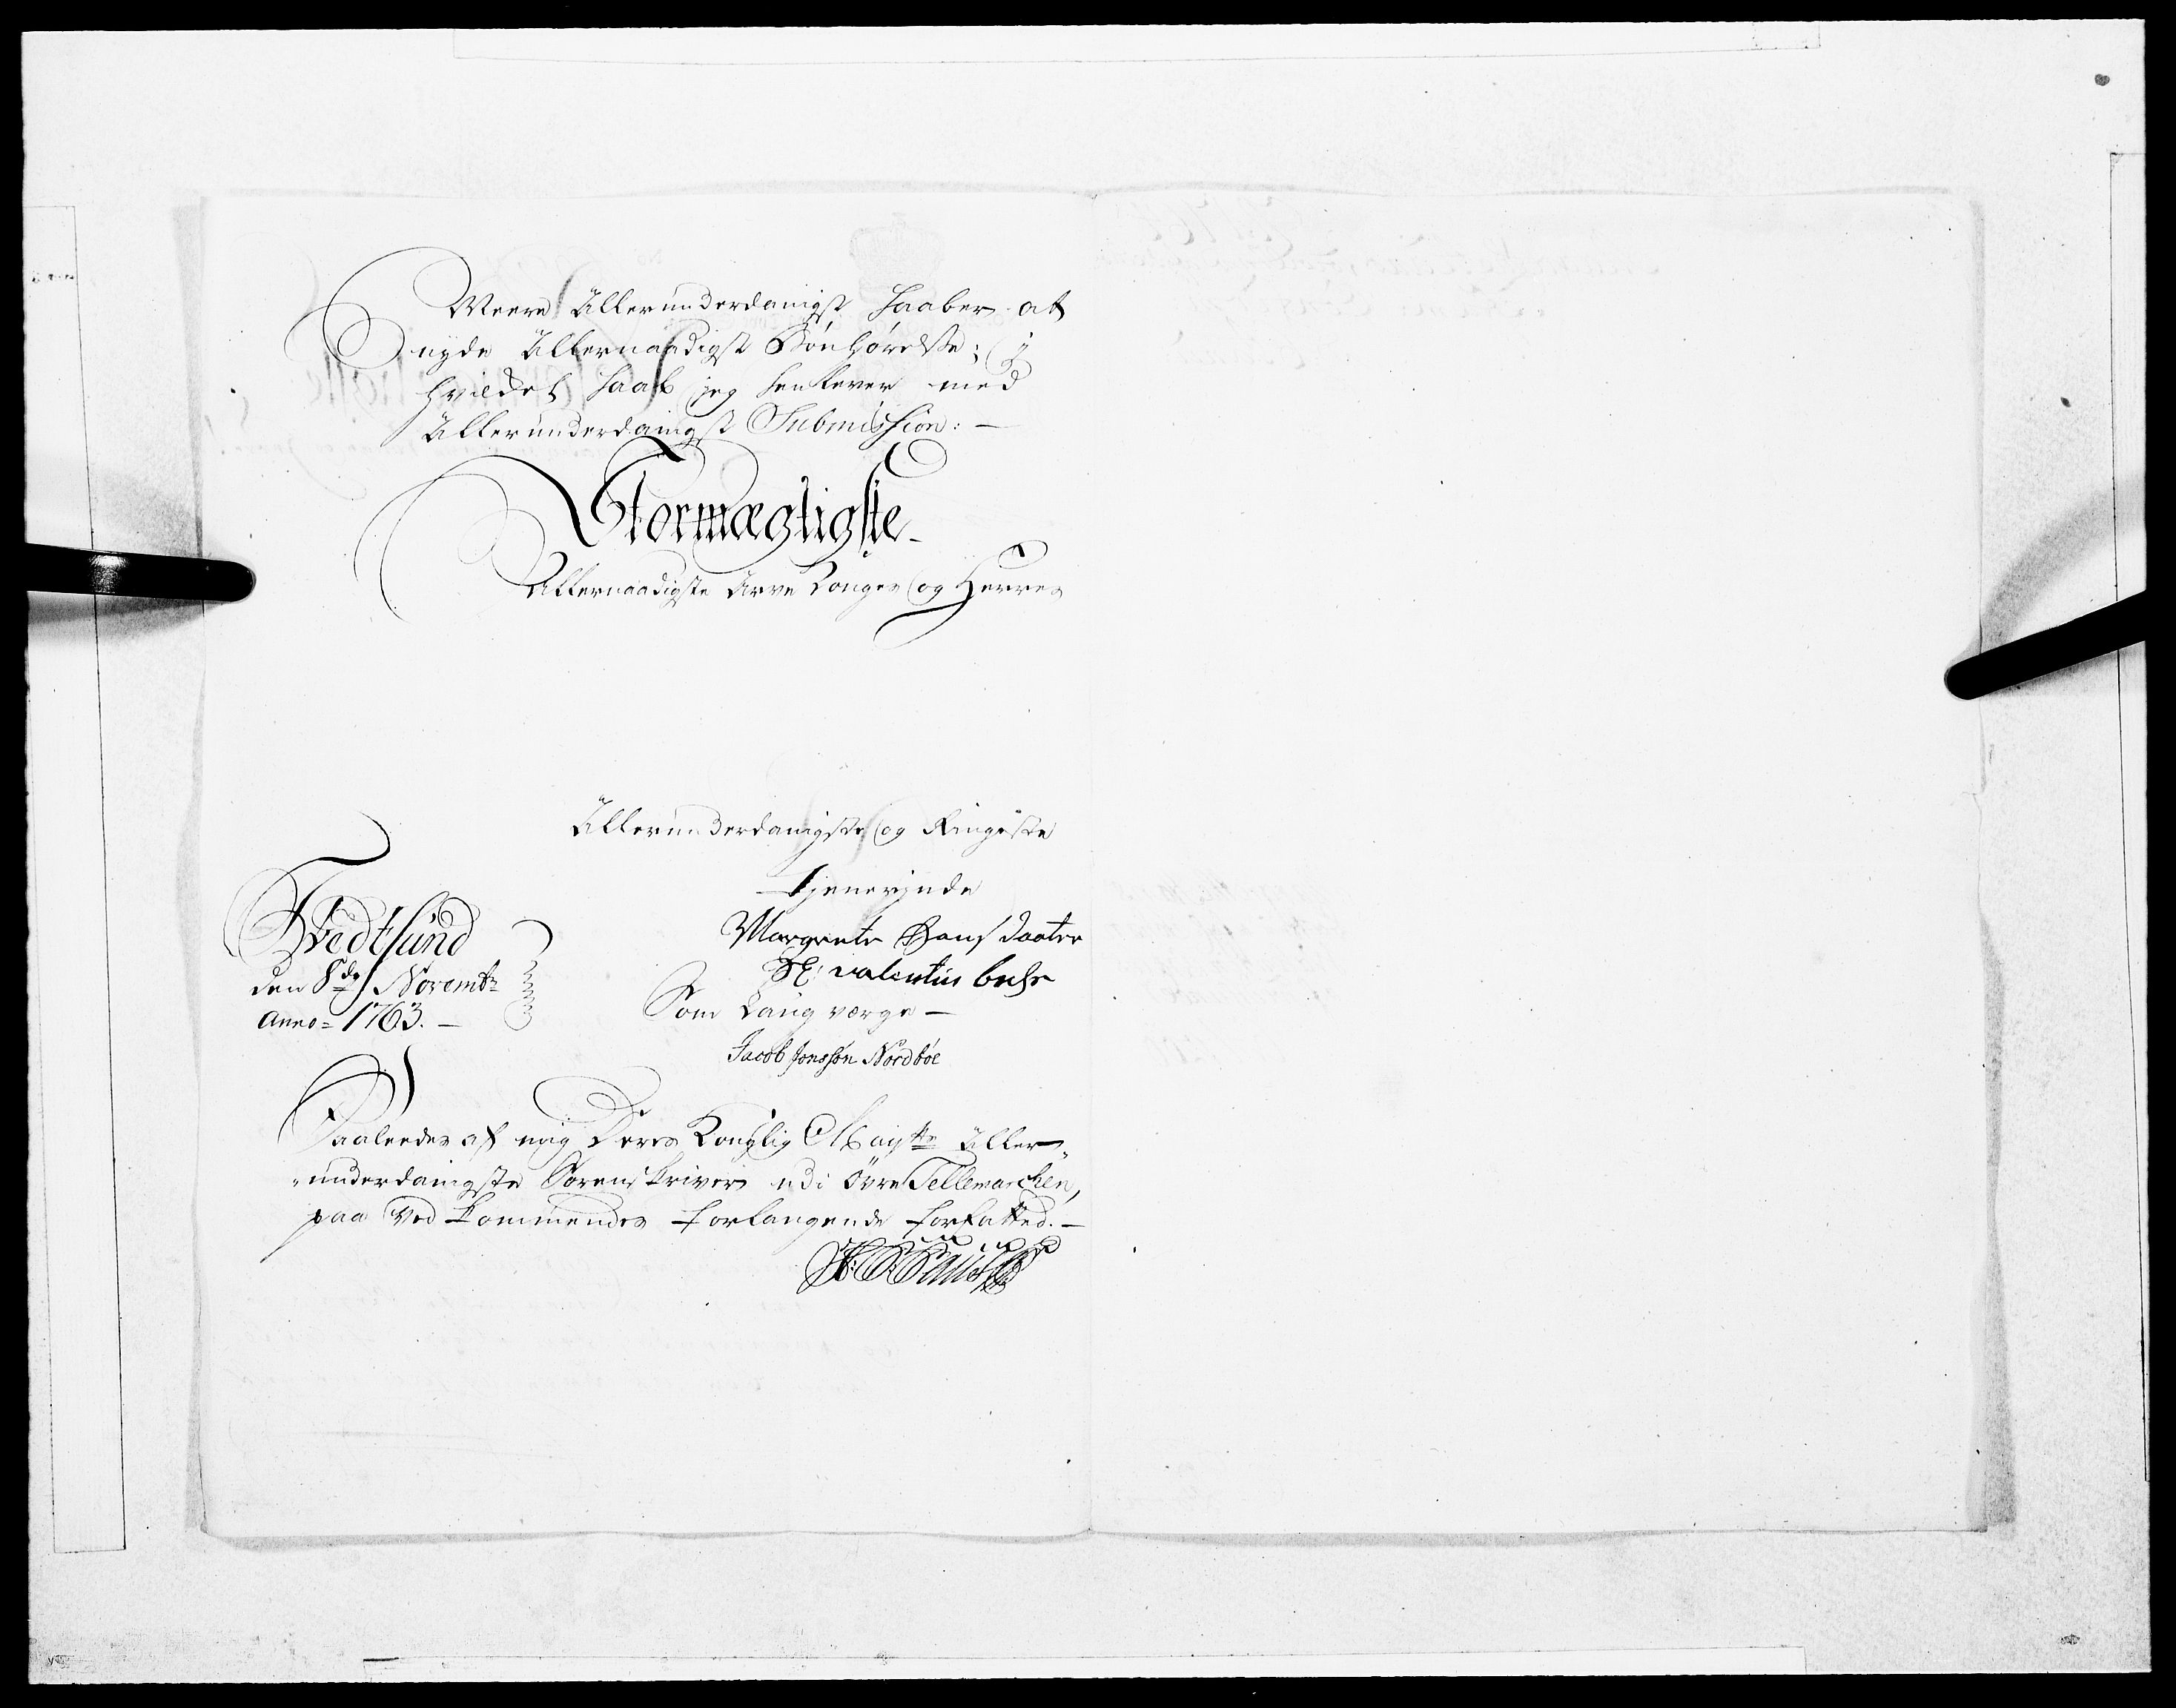 Meere Allerunderdanigst haaber at
nyde Allernaadigst Bønhørelse; j
hvilchet Haab jeg henlever med
Allerunderdanigst Submission: —
Stormægtigste
Allernaadigste Arve Konges og Herres
Allerunderdanigste og Ringeste
Tjenerinde
Margrete Hans daater
Sl: valentin behr
Som Laug værge —
Jacob Jonssøn Nordbøe
Tvedtsund
den 8de Novembr
Anno= 1763. —
Saaledes af mig Deres Konglig Mayts Aller„
„underdanigste Sorenskriver udi Øvre Tellemarchen,
paa Ved kommendes forlangende forfatted. —